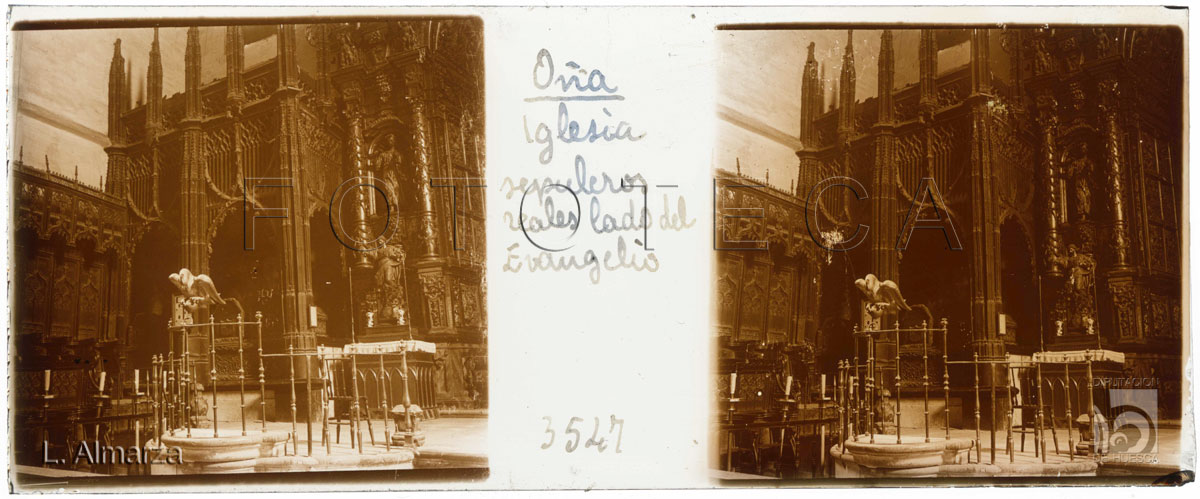 Oña
Iglesia
sepulcros
reales lado del
Evangelio
3547
FOTOTECA
L. Almarza
DIPUTACIÓN
DE HUESCA